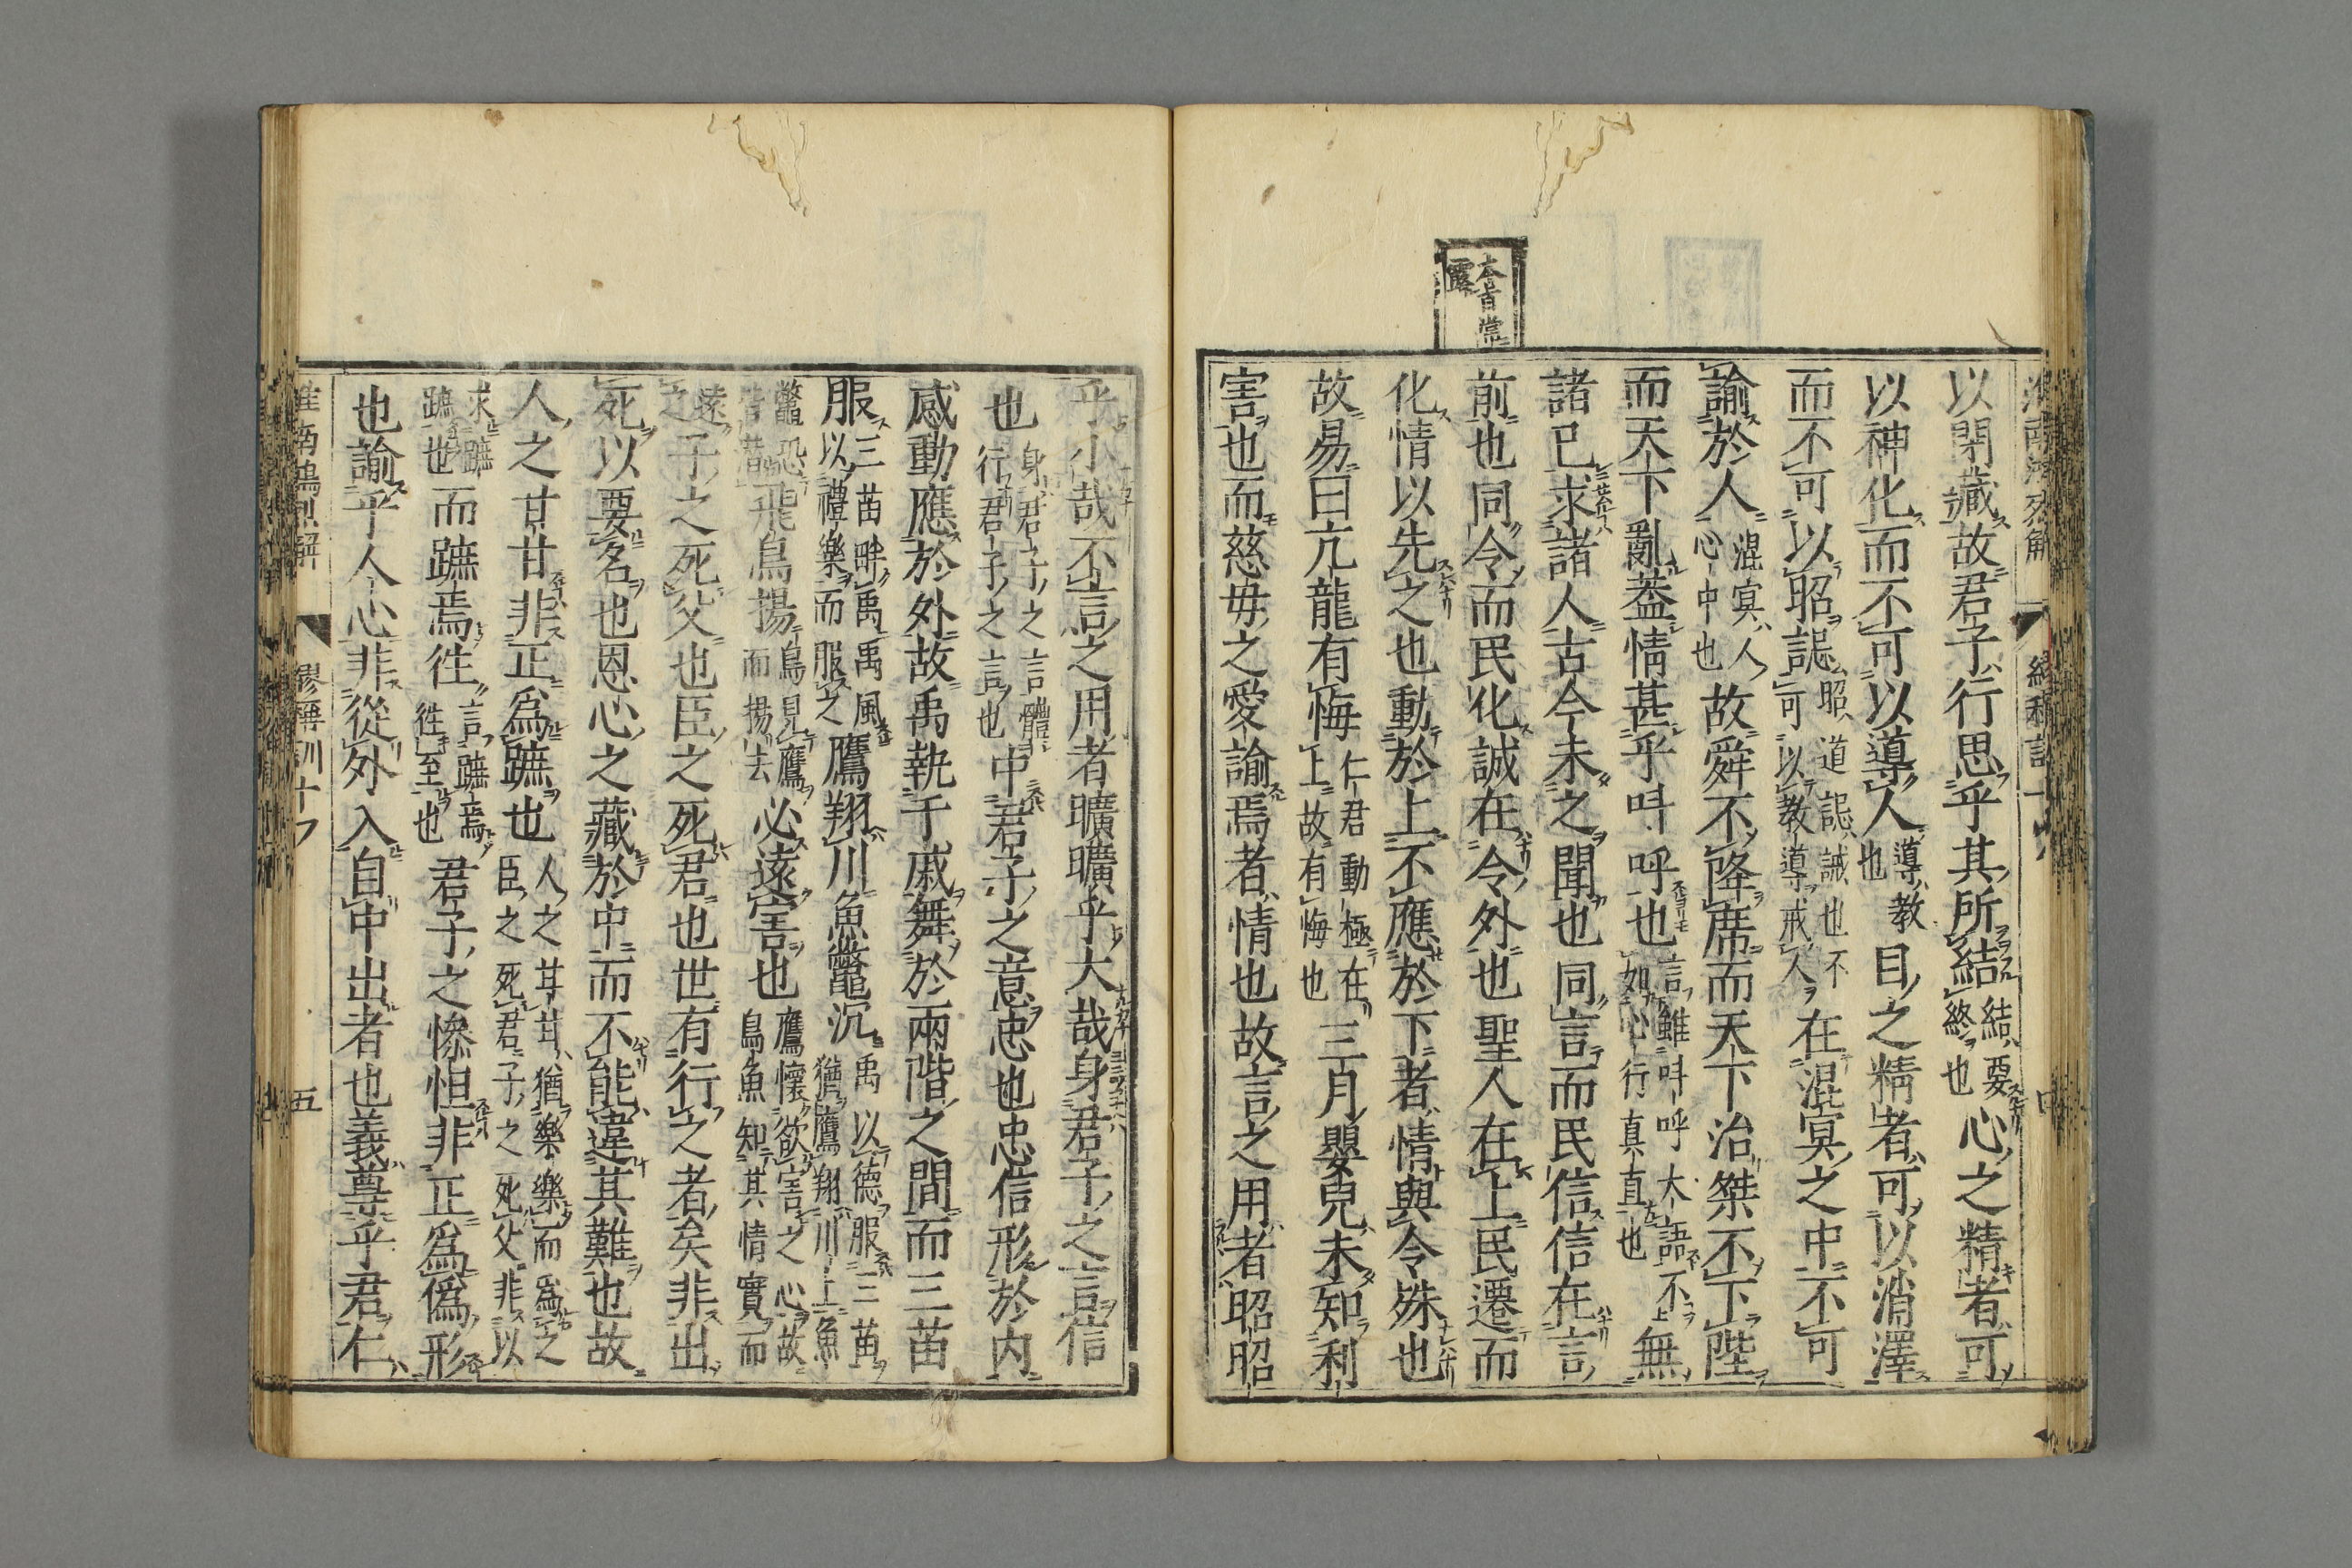 以閉藏故君子行思乎其所結結要終也心之精者可
以神化而不可以導人導教也目之精者可以消澤
而不可以昭誋昭道誋誡也不可以教導戒人在混冥之中不可
諭於人混冥人心中也故舜不降席而天下治桀不下陛
而天下亂蓋情甚乎叫呼也言雖叫呼大語不如心行真直也無
諸已求諸人古今未之聞也同言而民信信在言
前也同令而民化誠在令外也聖人在上民遷而
化情以先之也動於上不應於下者情與令殊也
故易曰亢龍有悔仁君動極在上故有悔也三月嬰兒未知利
害也而慈母之愛諭焉者情也故言之用者昭昭
乎小哉不言之用者曠曠乎大哉身君子之言信
也身君子之言體行君子之言也中君子之意忠也忠信形於内
感動應於外故禹執干戚舞於兩階之間而三苗
服三苗畔禹禹風以禮樂而服之鷹翔川魚鼈沉禹以德服三苗猶鷹翔川上魚
鼈恐皆潜飛鳥揚鳥見鷹而揚去必遠害也鷹懷欲害之心故鳥魚知其情實而
遠之子之死父也臣之死君也世有行之者矣非出
死以要名也恩心之藏於中而不能違其難也故
人之甘甘非正爲蹠也人之甘甘猶樂樂而爲之臣之死君子之死父非以
求蹠蹠也而蹠焉往言蹠焉往至也君子之慘怛非正爲僞形
也諭乎人心非從外入自中出者也義尊乎君仁
淮南鴻烈解
繆稱訓十
五